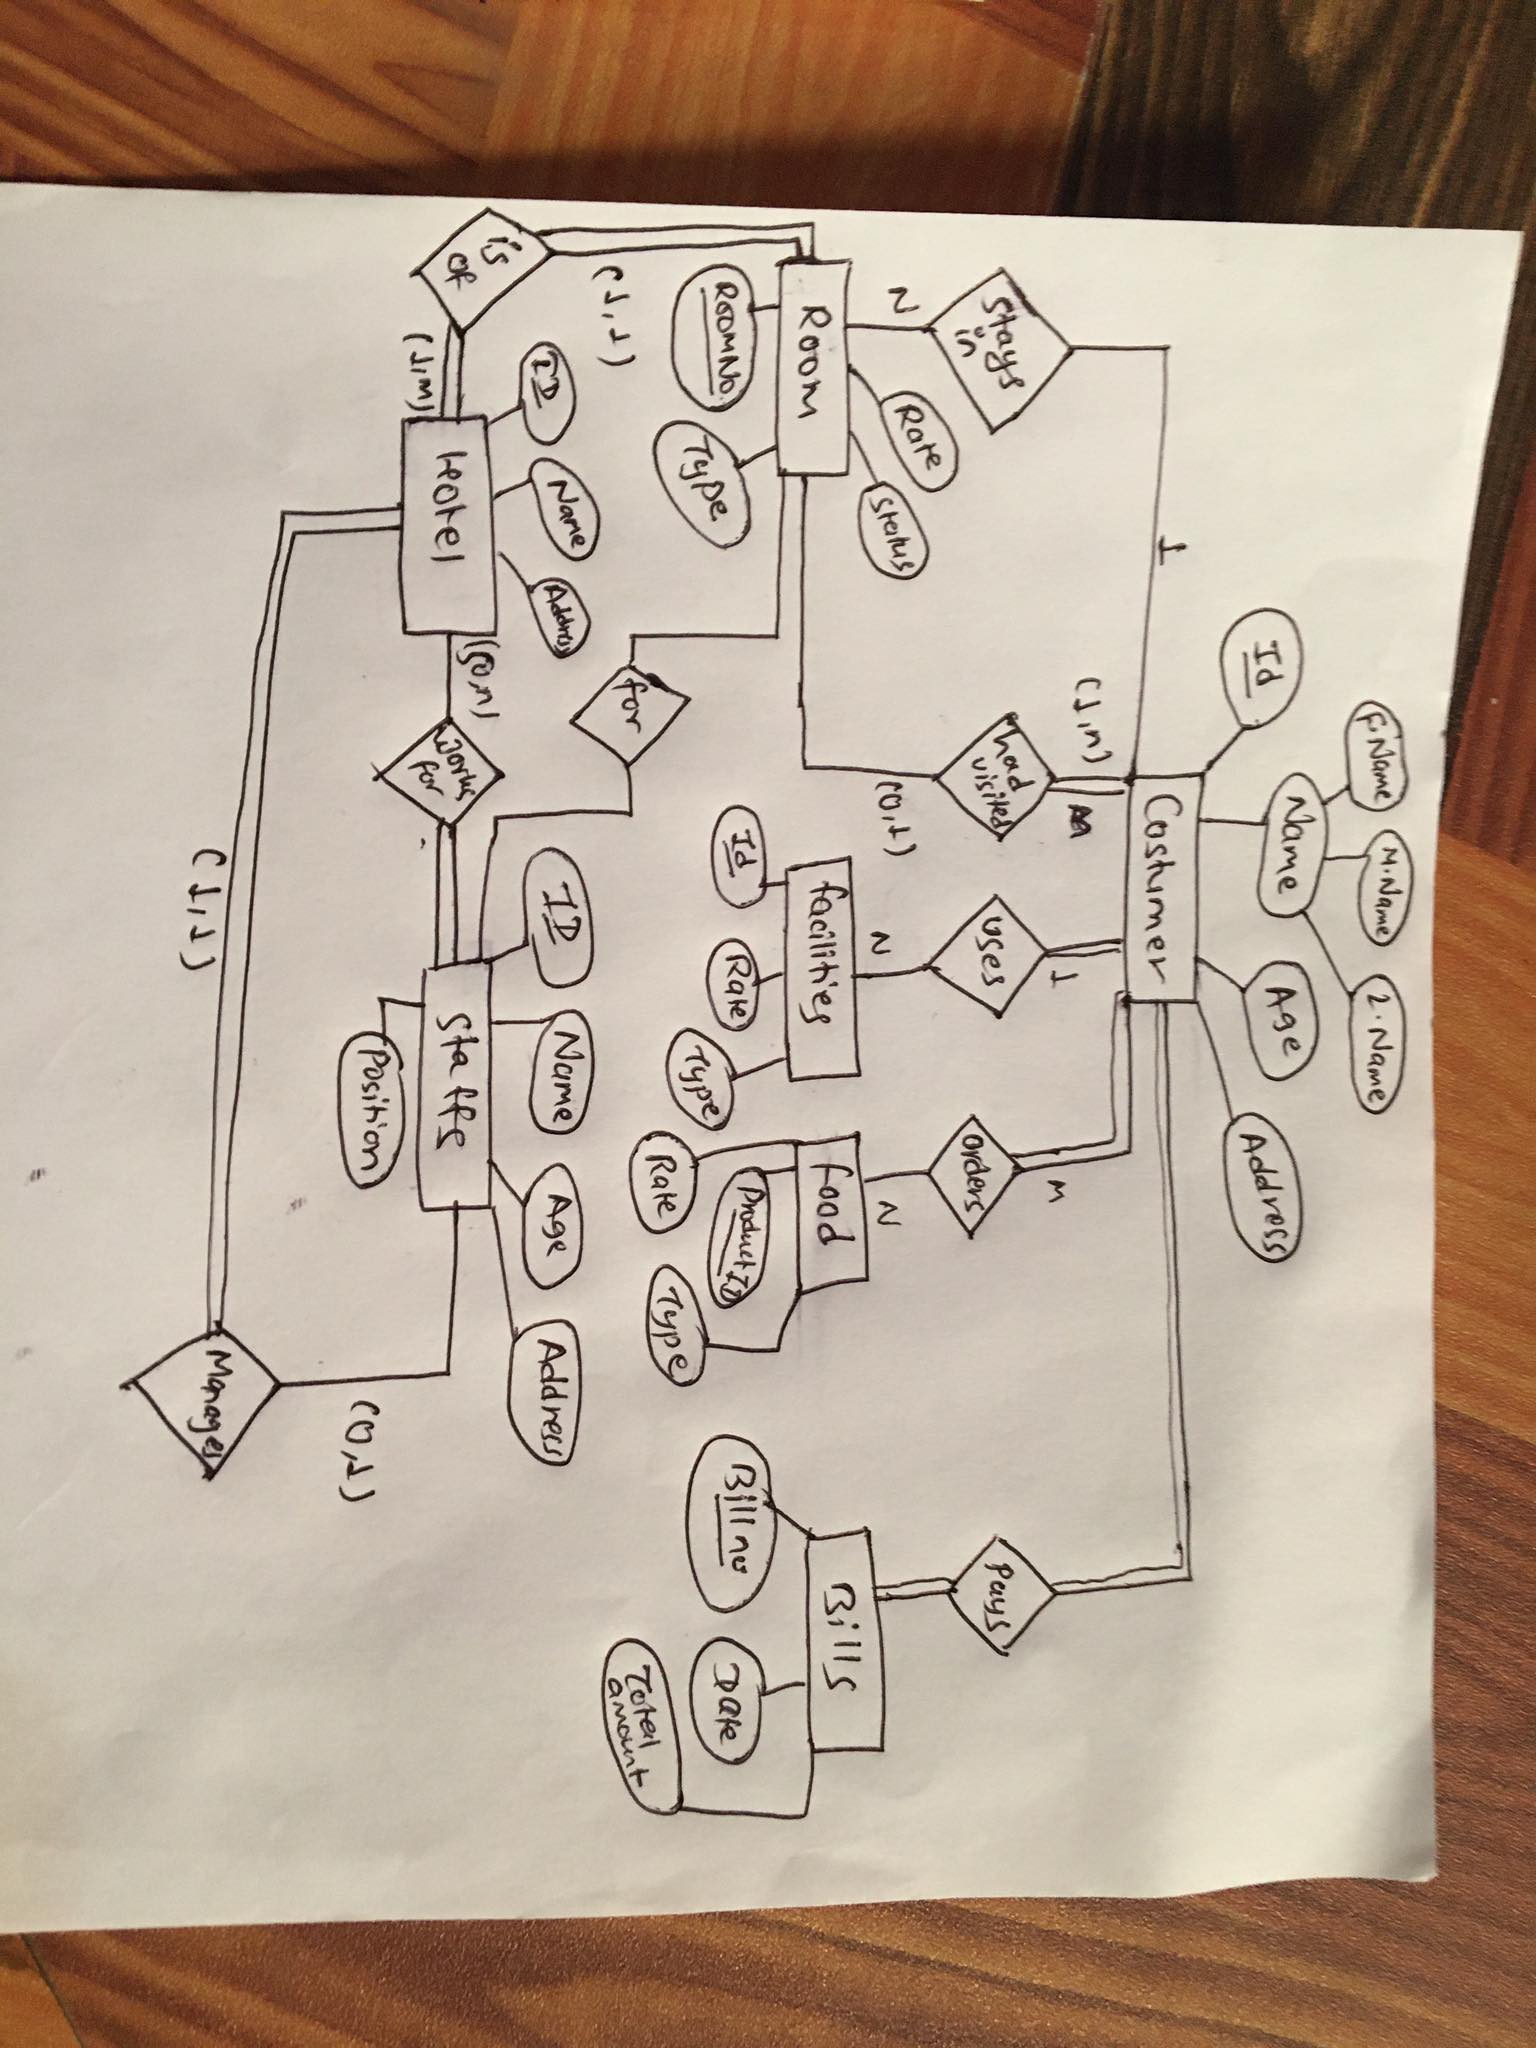 F.Name
M.Name
L.Name
Id
Name
Age
Address
Costumer
1
(1,n)
1
M
Stays
in
had
visited
uses
orders
Pays
N
Rate
Status
(0,1)
N
N
Room
facilities
food
Bills
RoomNo.
Type
Id
Rate
Type
Product ID
Rate
Type
Bill no
Date
Total
amount
for
(1,1)
ID
Name
Address
ID
Name
Age
Address
is
of
(1,m)
Hotel
0,n)
works
for
Staffs
Position
(0,1)
(1,1)
Manages